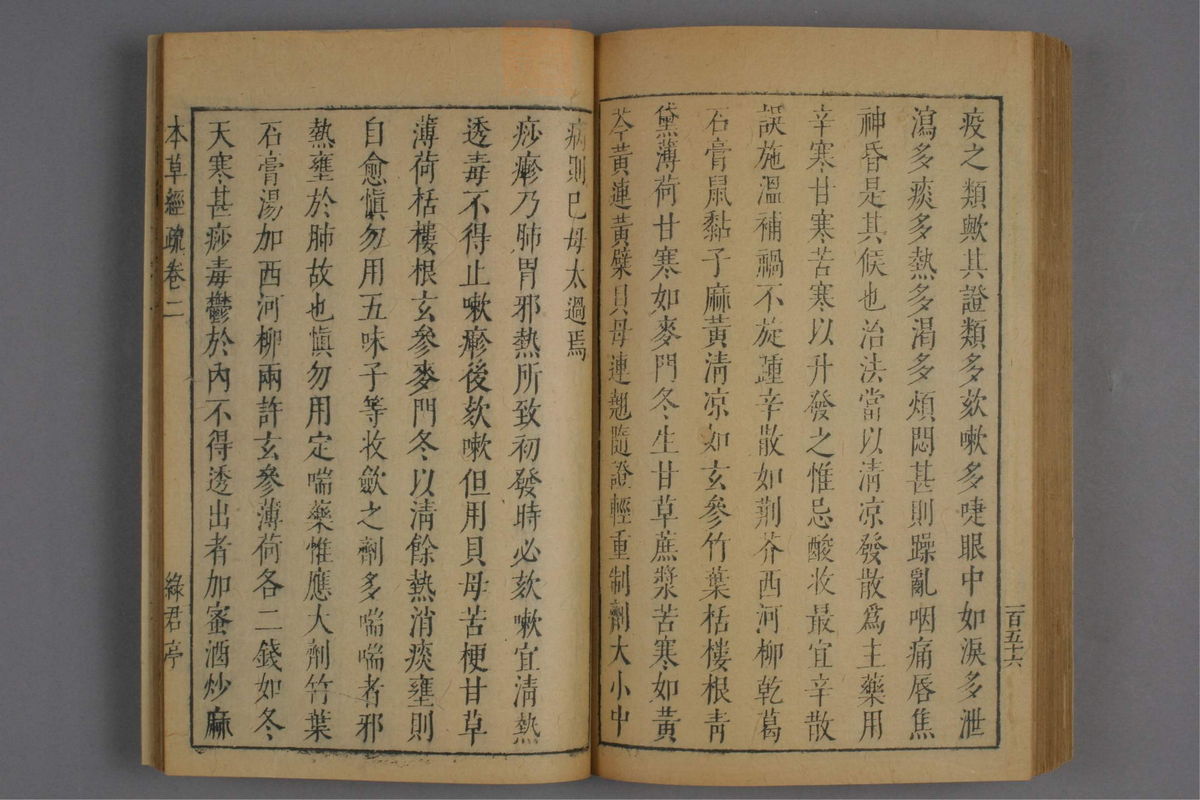 疫之類歟其證類多欬嗽多嚏眼中如淚多泄
瀉多痰多熱多渴多煩悶甚則躁亂咽痛唇焦
神昏是其候也治法當以清凉發散爲主藥用
辛寒甘寒苦寒以升發之惟忌酸收最宜辛散
誤施溫補禍不旋踵辛散如荆芥西河柳乾葛
石膏鼠黏子麻黃清凉如玄參竹葉栝樓根青
黛薄荷甘寒如麥門冬生甘草蔗漿苦寒如黃
芩黃連黃蘗貝母連翹隨證輕重制劑大小中
一百五十六
病則已毋太過焉
痧㾦乃肺胃邪熱所致初發時必欬嗽宜清熱
透毒不得止嗽㾦後欬嗽但用貝母苦梗甘草
薄荷栝樓根玄參麥門冬以清餘熱消痰壅則
自愈愼勿用五味子等收歛之劑多喘喘者邪
熱壅於肺故也愼勿用定喘藥惟應大劑竹葉
石膏湯加西河柳兩許玄參薄荷各二錢如冬
天寒甚痧毒鬱於內不得透出者加蜜酒炒麻
本草經疏卷二
綠君亭